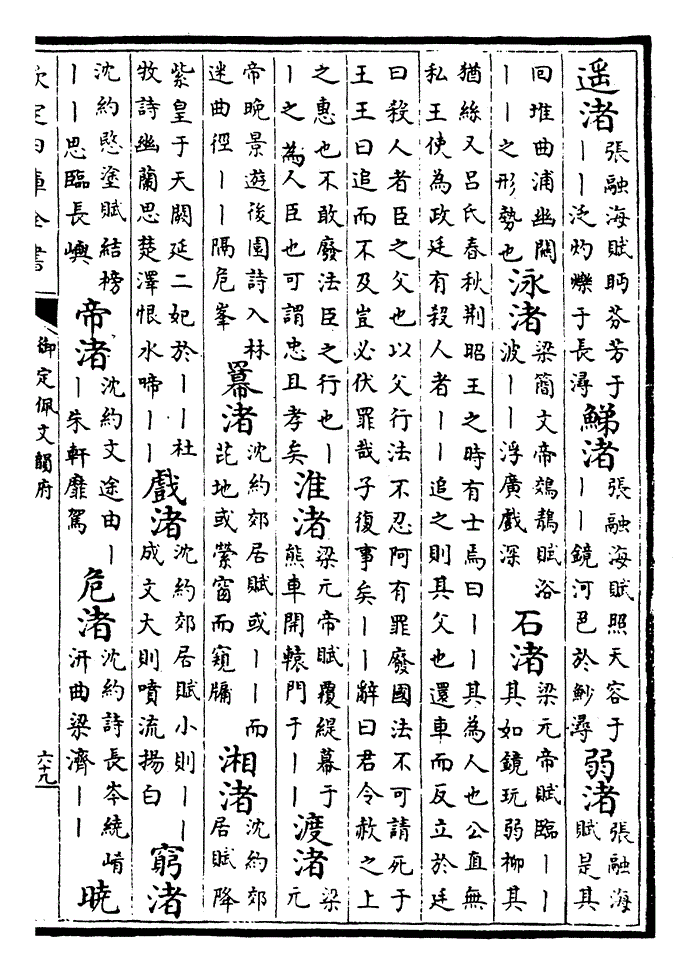 遥渚
張融海賦眄芬芳于
｜｜泛灼爍于長潯
鮷渚
張融海賦照天容于
｜｜鏡河色於魦潯
弱渚
張融海
賦是其
回堆曲浦幽閼
｜｜之形勢也
泳渚
梁簡文帝鵁鶄賦浴
波｜｜浮廣戲深
石渚
梁元帝賦臨｜｜
其如鏡玩弱柳其
猶絲又吕氏春秋荆昭王之時有士焉曰｜｜其為人也公直無
私王使為政廷有殺人者｜｜追之則其父也還車而反立於廷
曰殺人者臣之父也以父行法不忍阿有罪廢國法不可請死于
王王曰追而不及豈必伏罪哉子復事矣｜｜辭曰君令赦之上
之惠也不敢廢法臣之行也｜
｜之為人臣也可謂忠且孝矣
淮渚
梁元帝賦覆緹幕于
熊車開轅門于｜｜
渡渚
梁
元
帝晚景遊後園詩入林
迷曲徑｜｜隔危峯
羃渚
沈約郊居賦或｜｜而
芘地或縈窗而窺牖
湘渚
沈約郊
居賦降
紫皇于天闕延二妃於｜｜杜
牧詩幽蘭思楚澤恨水啼｜｜
戲渚
沈約郊居賦小則｜｜
成文大則噴流揚白
窮渚
沈約愍塗賦結榜
｜｜思臨長嶼
帝渚
沈約文途曲｜
｜朱軒靡駕
危渚
沈約詩長岑統崤
汧曲梁濟｜｜
曉
欽定四庫全書
御定佩文韻府
六十九